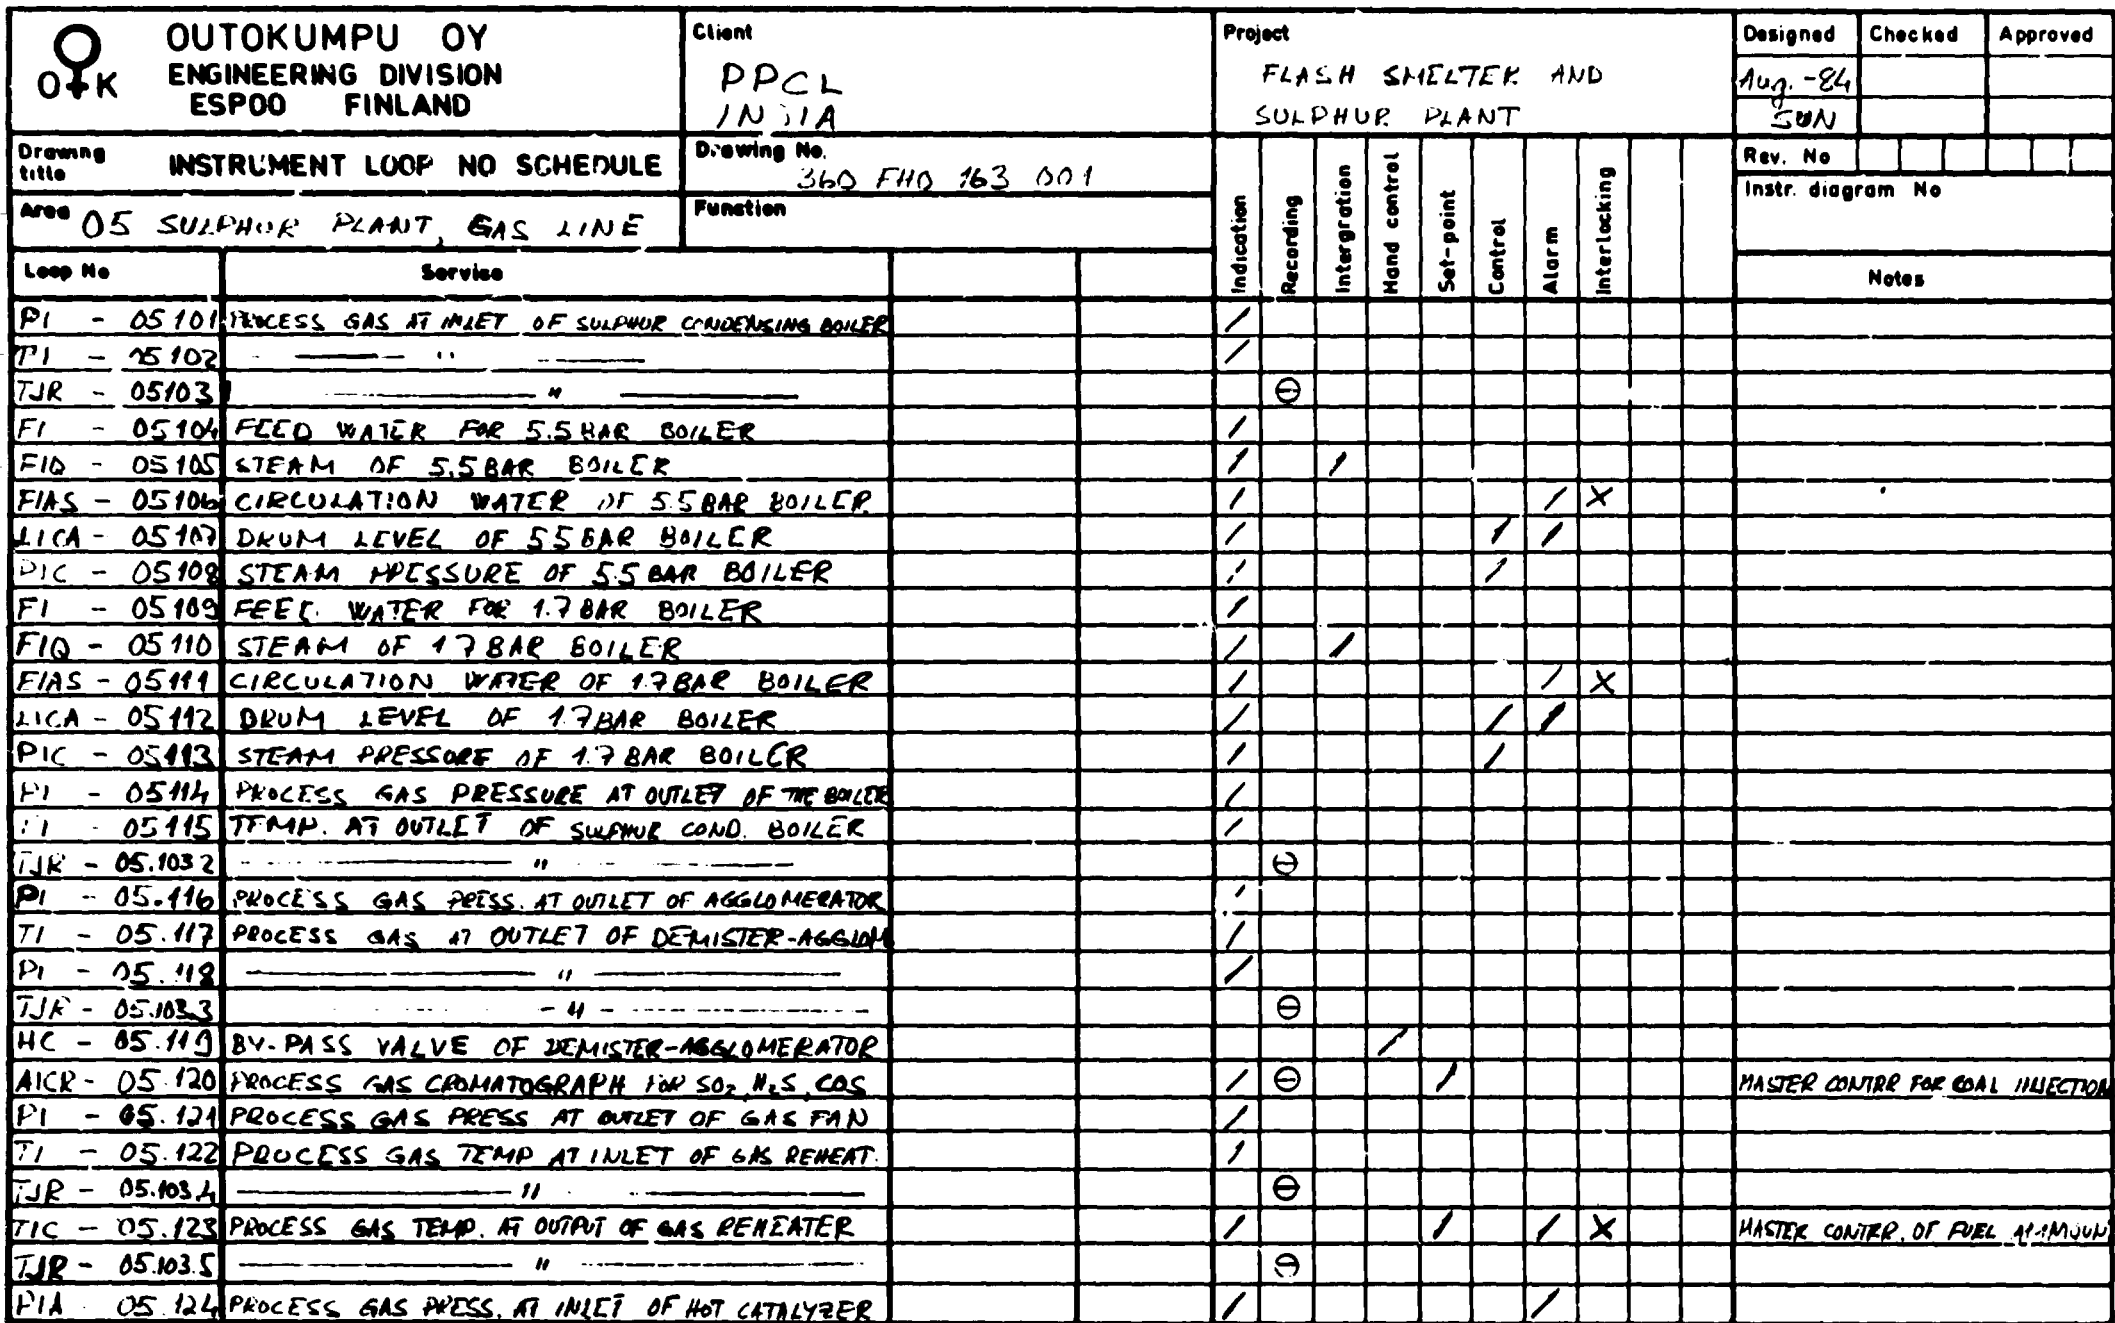 OUTOKUMPU OY
ENGINEERING DIVISION
ESPOO FINLAND
O K
Client
PPCL
INDIA
Project
FLASH SMELTER AND
SULPHUR PLANT
Designed Checked Approved
Aug. -84
SUN
Drawing title INSTRUMENT LOOP NO SCHEDULE
Drawing No.
360 FHO 163 001
Rev. No
Instr. diagram No
Area 05 SULPHUR PLANT, GAS LINE
Function
Indication Recording Intergration Hand control Set-point Control Alarm Interlocking
Loop No Service Notes
PI - 05101 PROCESS GAS AT INLET OF SULPHUR CONDENSING BOILER /
TI - 05102 — " — /
TJR - 05103 — " — ⊖
FI - 05104 FEED WATER FOR 5.5 BAR BOILER /
FIQ - 05105 STEAM OF 5.5 BAR BOILER / /
FIAS - 05106 CIRCULATION WATER OF 5.5 BAR BOILER. / / X
LICA - 05107 DRUM LEVEL OF 5.5 BAR BOILER / / /
PIC - 05108 STEAM PRESSURE OF 5.5 BAR BOILER / /
FI - 05109 FEED. WATER FOR 1.7 BAR BOILER /
FIQ - 05110 STEAM OF 1.7 BAR BOILER / /
FIAS - 05111 CIRCULATION WATER OF 1.7 BAR BOILER / / X
LICA - 05112 DRUM LEVEL OF 1.7 BAR BOILER / / /
PIC - 05113 STEAM PRESSURE OF 1.7 BAR BOILER / /
PI - 05114 PROCESS GAS PRESSURE AT OUTLET OF THE BOILER /
TI - 05115 TEMP. AT OUTLET OF SULPHUR COND. BOILER /
TJR - 05.103 2 — " — ⊖
PI - 05.116 PROCESS GAS PRESS. AT OUTLET OF AGGLOMERATOR /
TI - 05.117 PROCESS GAS AT OUTLET OF DEMISTER-AGGLOM /
PI - 05.118 — " — /
TJR - 05.103.3 — " — ⊖
HC - 05.119 BY-PASS VALVE OF DEMISTER-AGGLOMERATOR /
AICR - 05.120 PROCESS GAS CROMATOGRAPH FOR SO2, H2S, COS / ⊖ / MASTER CONTRR FOR COAL INJECTION
PI - 05.121 PROCESS GAS PRESS AT OUTLET OF GAS FAN /
TI - 05.122 PROCESS GAS TEMP AT INLET OF GAS REHEAT. /
TJR - 05.103.4 — " — ⊖
TIC - 05.123 PROCESS GAS TEMP. AT OUTPUT OF GAS REHEATER / / / X MASTER CONTRR. OF FUEL
TJR - 05.103.5 — " — ⊖
PIA 05.124 PROCESS GAS PRESS. AT INLET OF HOT CATALYZER / /